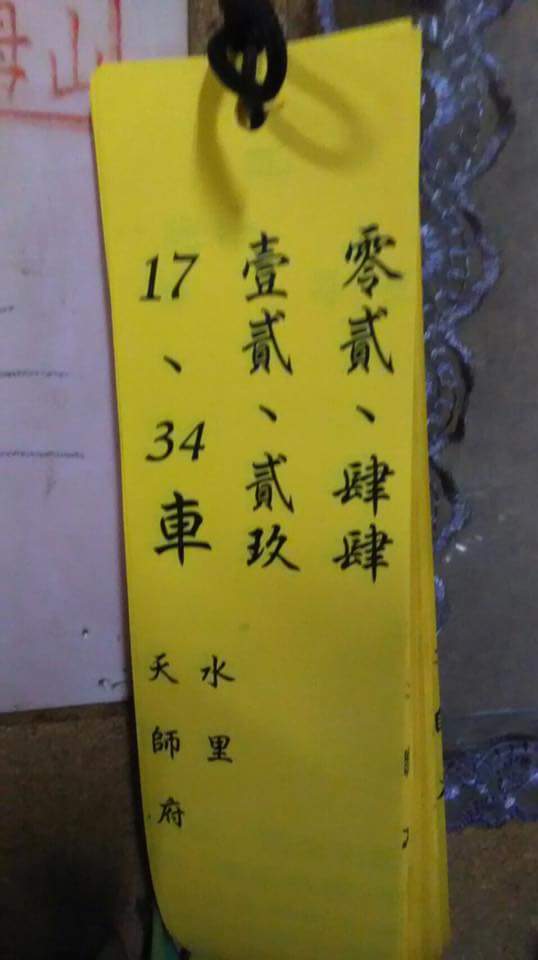 零貳、肆肆
壹貳、貳玖
17、34車
水里
天師府
山